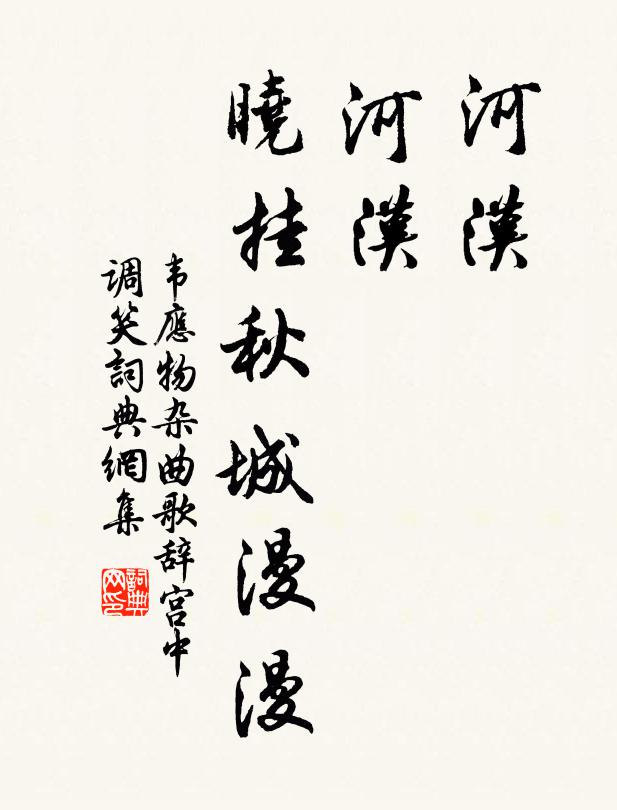 河漢
河漢
曉挂秋城漫漫
韦應物杂曲歌辞宫中
调笑詞典網集
詞典
网印